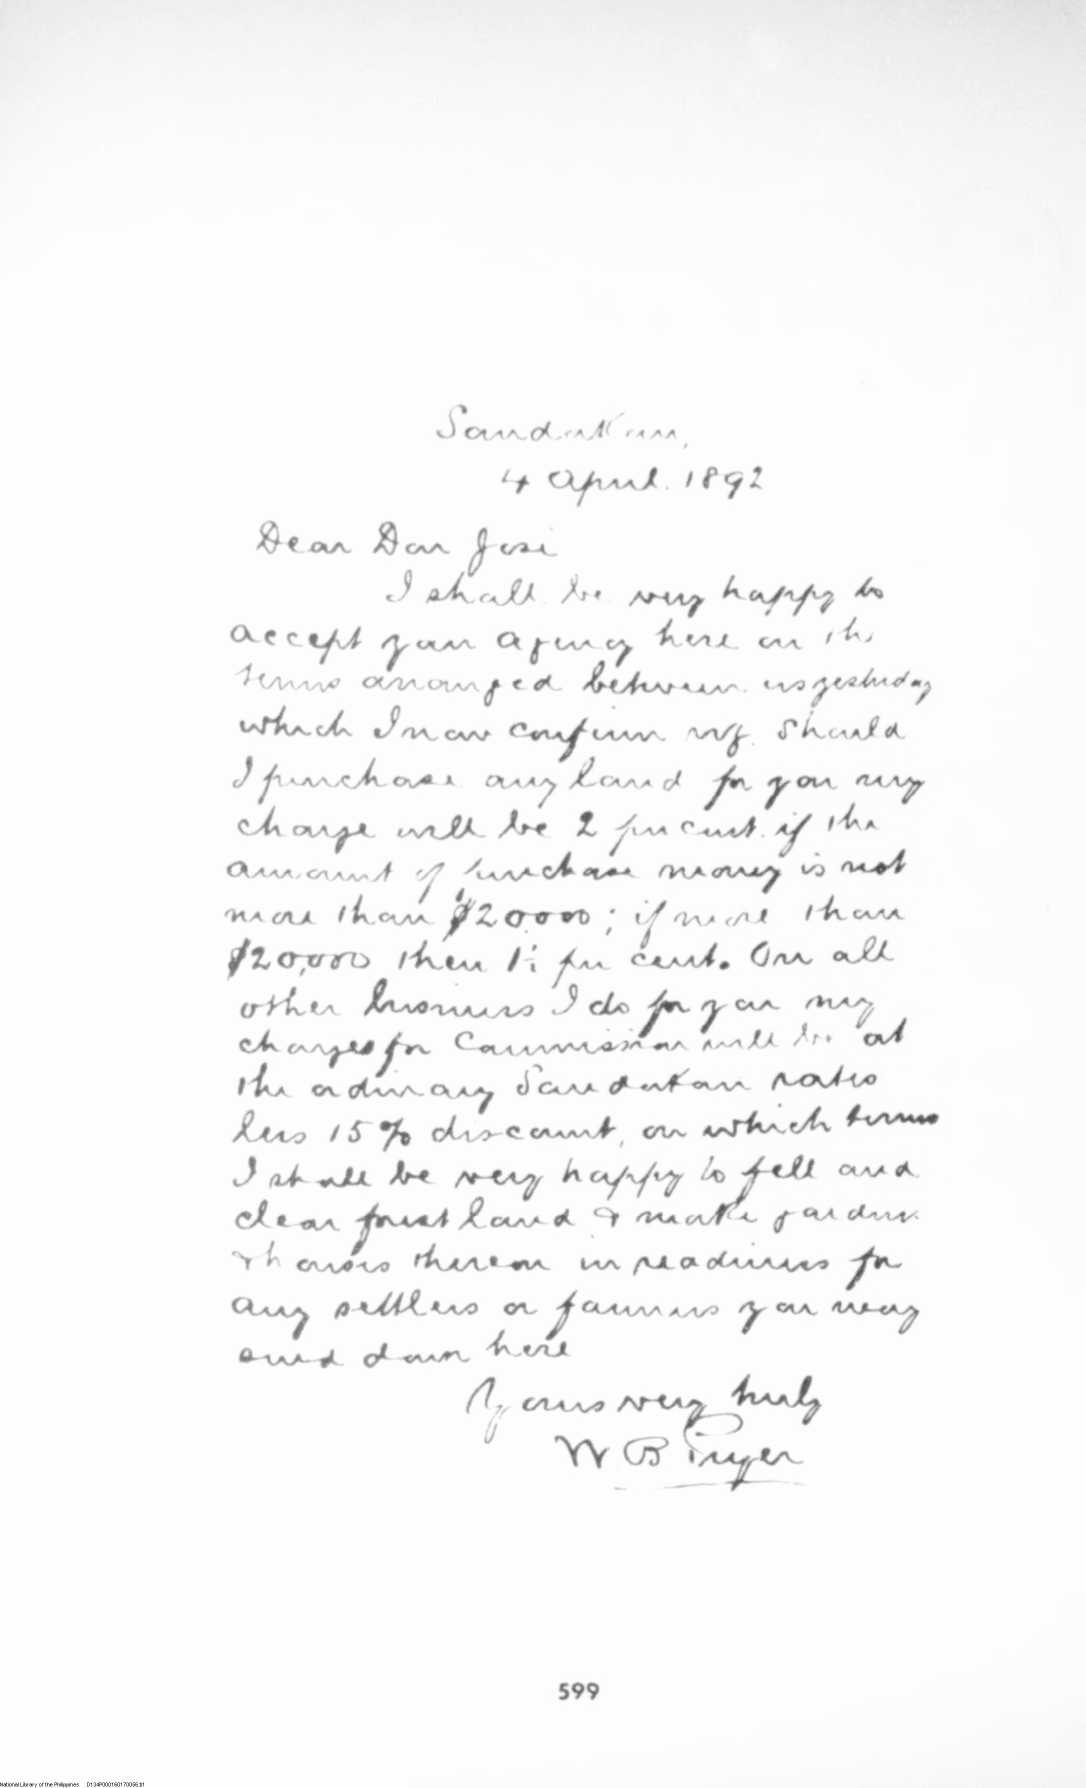 Sandakan,
4 April. 1892
Dear Don José
I shall be very happy to
accept your agency here on the
terms arranged between us yesterday
which I now confirm viz. Should
I purchase any land for you my
charge will be 2 per cent. if the
amount of purchase money is not
more than $20.000; if more than
$20,000 then 1½ per cent. On all
other business I do for you my
charges for Commission will be at
the ordinary Sandakan rates
less 15% discount, on which terms
I shall be very happy to fell and
clear forest land & make gardens
& houses thereon in readiness for
any settlers or farmers you may
send down here
Yours very truly
W B Pryer
599
National Library of the Philippines